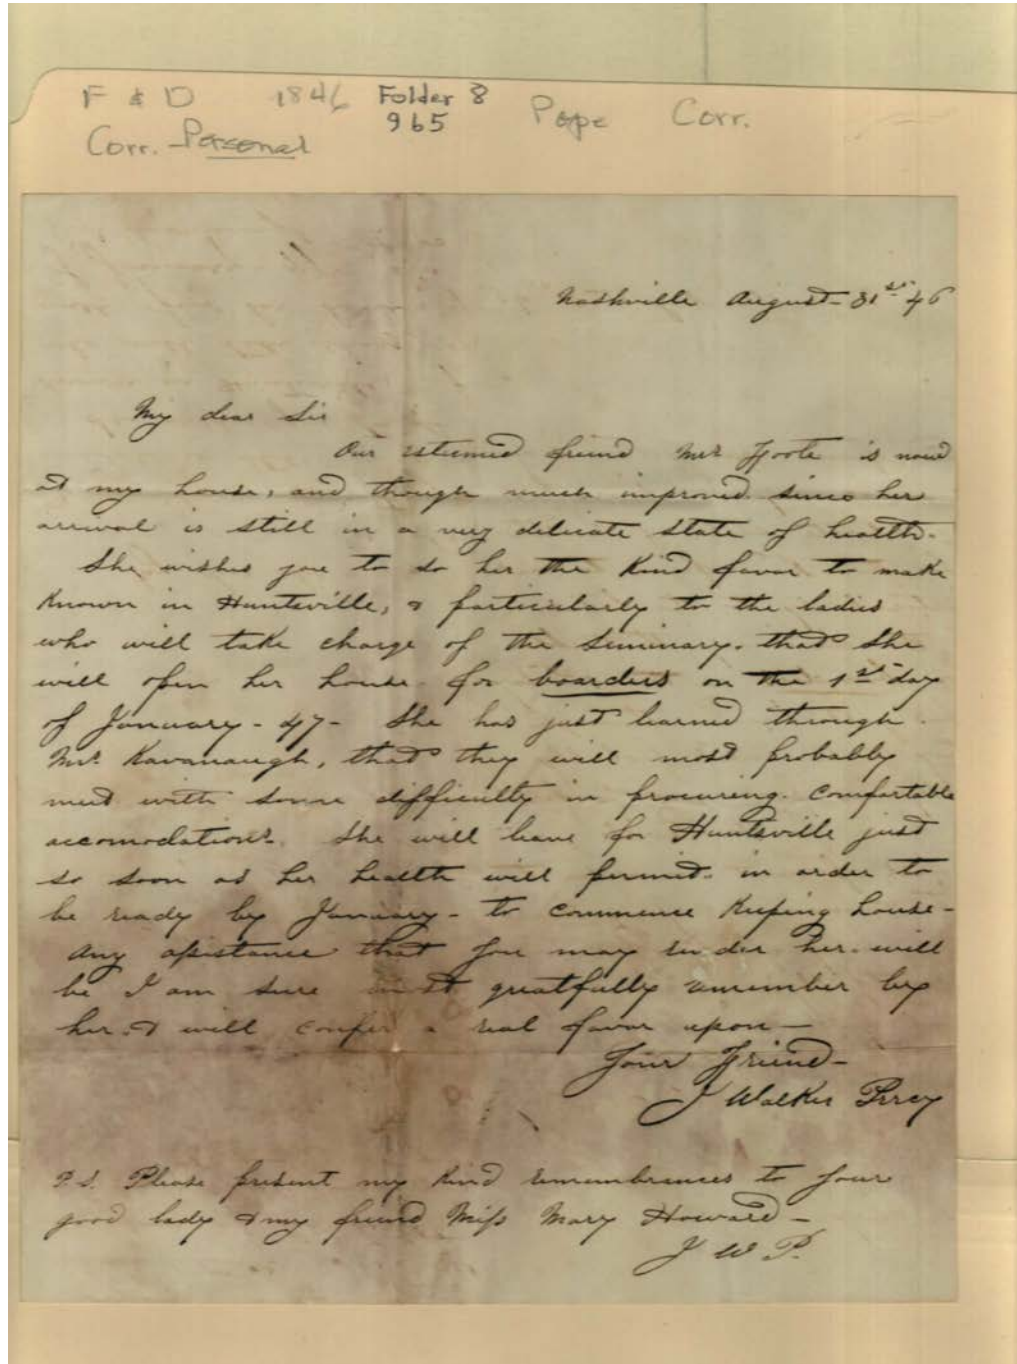 F & D 1846 Folder 8 Pope Corr.
965
Corr. - Personal
Nashville August 31st 46
My dear Sir
Our esteemed friend Mrs Foote is now
at my house, and though much improved since her
arrival is still in a very delicate state of health.
She wishes you to do her the kind favor to make
known in Huntsville, & particularly to the ladies
who will take charge of the Seminary, that she
will open her house for boarders on the 1st day
of January - 47 - She has just learned through
Mr. Kavanaugh, that they will most probably
meet with some difficulty in procuring comfortable
accomodations. She will leave for Huntsville just
so soon as her health will permit in order to
be ready by January - to commence keeping house -
Any assistance that you may render her will
be I am sure most greatfully remember by
her & will confer a real favor upon -
Your Friend -
J Walker Percy
P.S. Please present my kind remembrances to your
good lady & my friend Miss Mary Howard -
J W P.